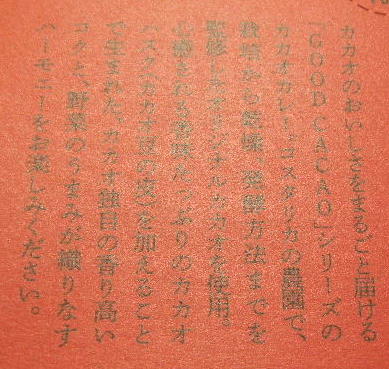 カカオのおいしさをまるごと届ける
「GOOD CACAO」シリーズの
カカオカレー。コスタリカの農園で、
栽培から乾燥、発酵方法までを
監修したオリジナルカカオを使用。
まれる美味たっぷりのカカオ
ハスク（カカオ豆の皮）を加えること
で生まれた、カカオ独自の香り高い
コクと、野菜のうまみが織りなす
ハーモニーをお楽しみください。